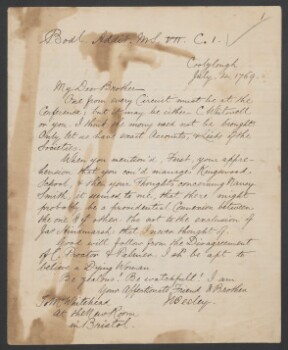 Bodl. Addit. MS. VII. C. 1.
Coolylough
July, 20, 1769.
My Dear Brother
One from every Circuit must be at the
Conference, but it may be either C. Whitwell
or you. I think the money need not be brought
Only let us have exact Accounts, & Lists of the
Societies.
When you mention'd, First, your appre-
hension that you cou'd manage Kingswood
School, & then your Thoughts concerning Nancy
Smith, it seemed to me, that there might
probably be a providential Connexion between
the one & the other: tho' not to the exclusion of
Jas Hindmarsh that I ever thought of.
Good will follow from the Disagreement
of C. Proctor & Palmer. I shd be apt to
believe a Dying Woman
Be zealous! Be watchful! I am
Your Affectionate Friend & Brother
J Wesley
To Mr Whitehead
At the New Room
in Bristol.